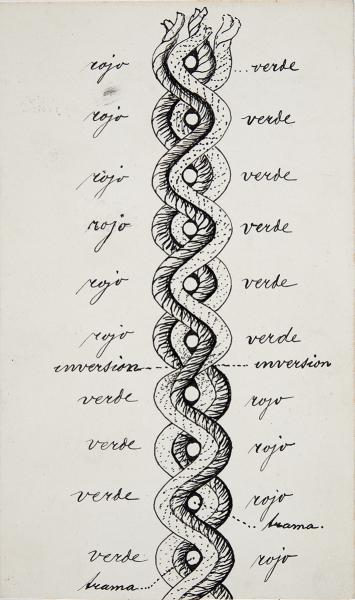 rojo verde
rojo verde
rojo verde
rojo verde
rojo verde
rojo verde
inversion inversion
verde rojo
verde rojo
verde rojo
trama.
verde rojo
trama